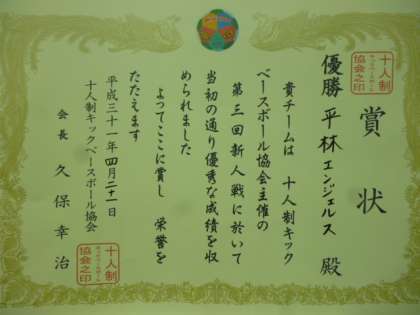 賞状
優勝 平林エンジェルス 殿
貴チームは 十人制キック
ベースボール協会主催の
第三回新人戦に於いて
当初の通り優秀な成績を収
められました
よってここに賞し 栄誉を
たたえます
平成三十一年四月二十一日
十人制キックベースボール協会
会長 久保幸治
十人制
協会之印
十人制
協会之印